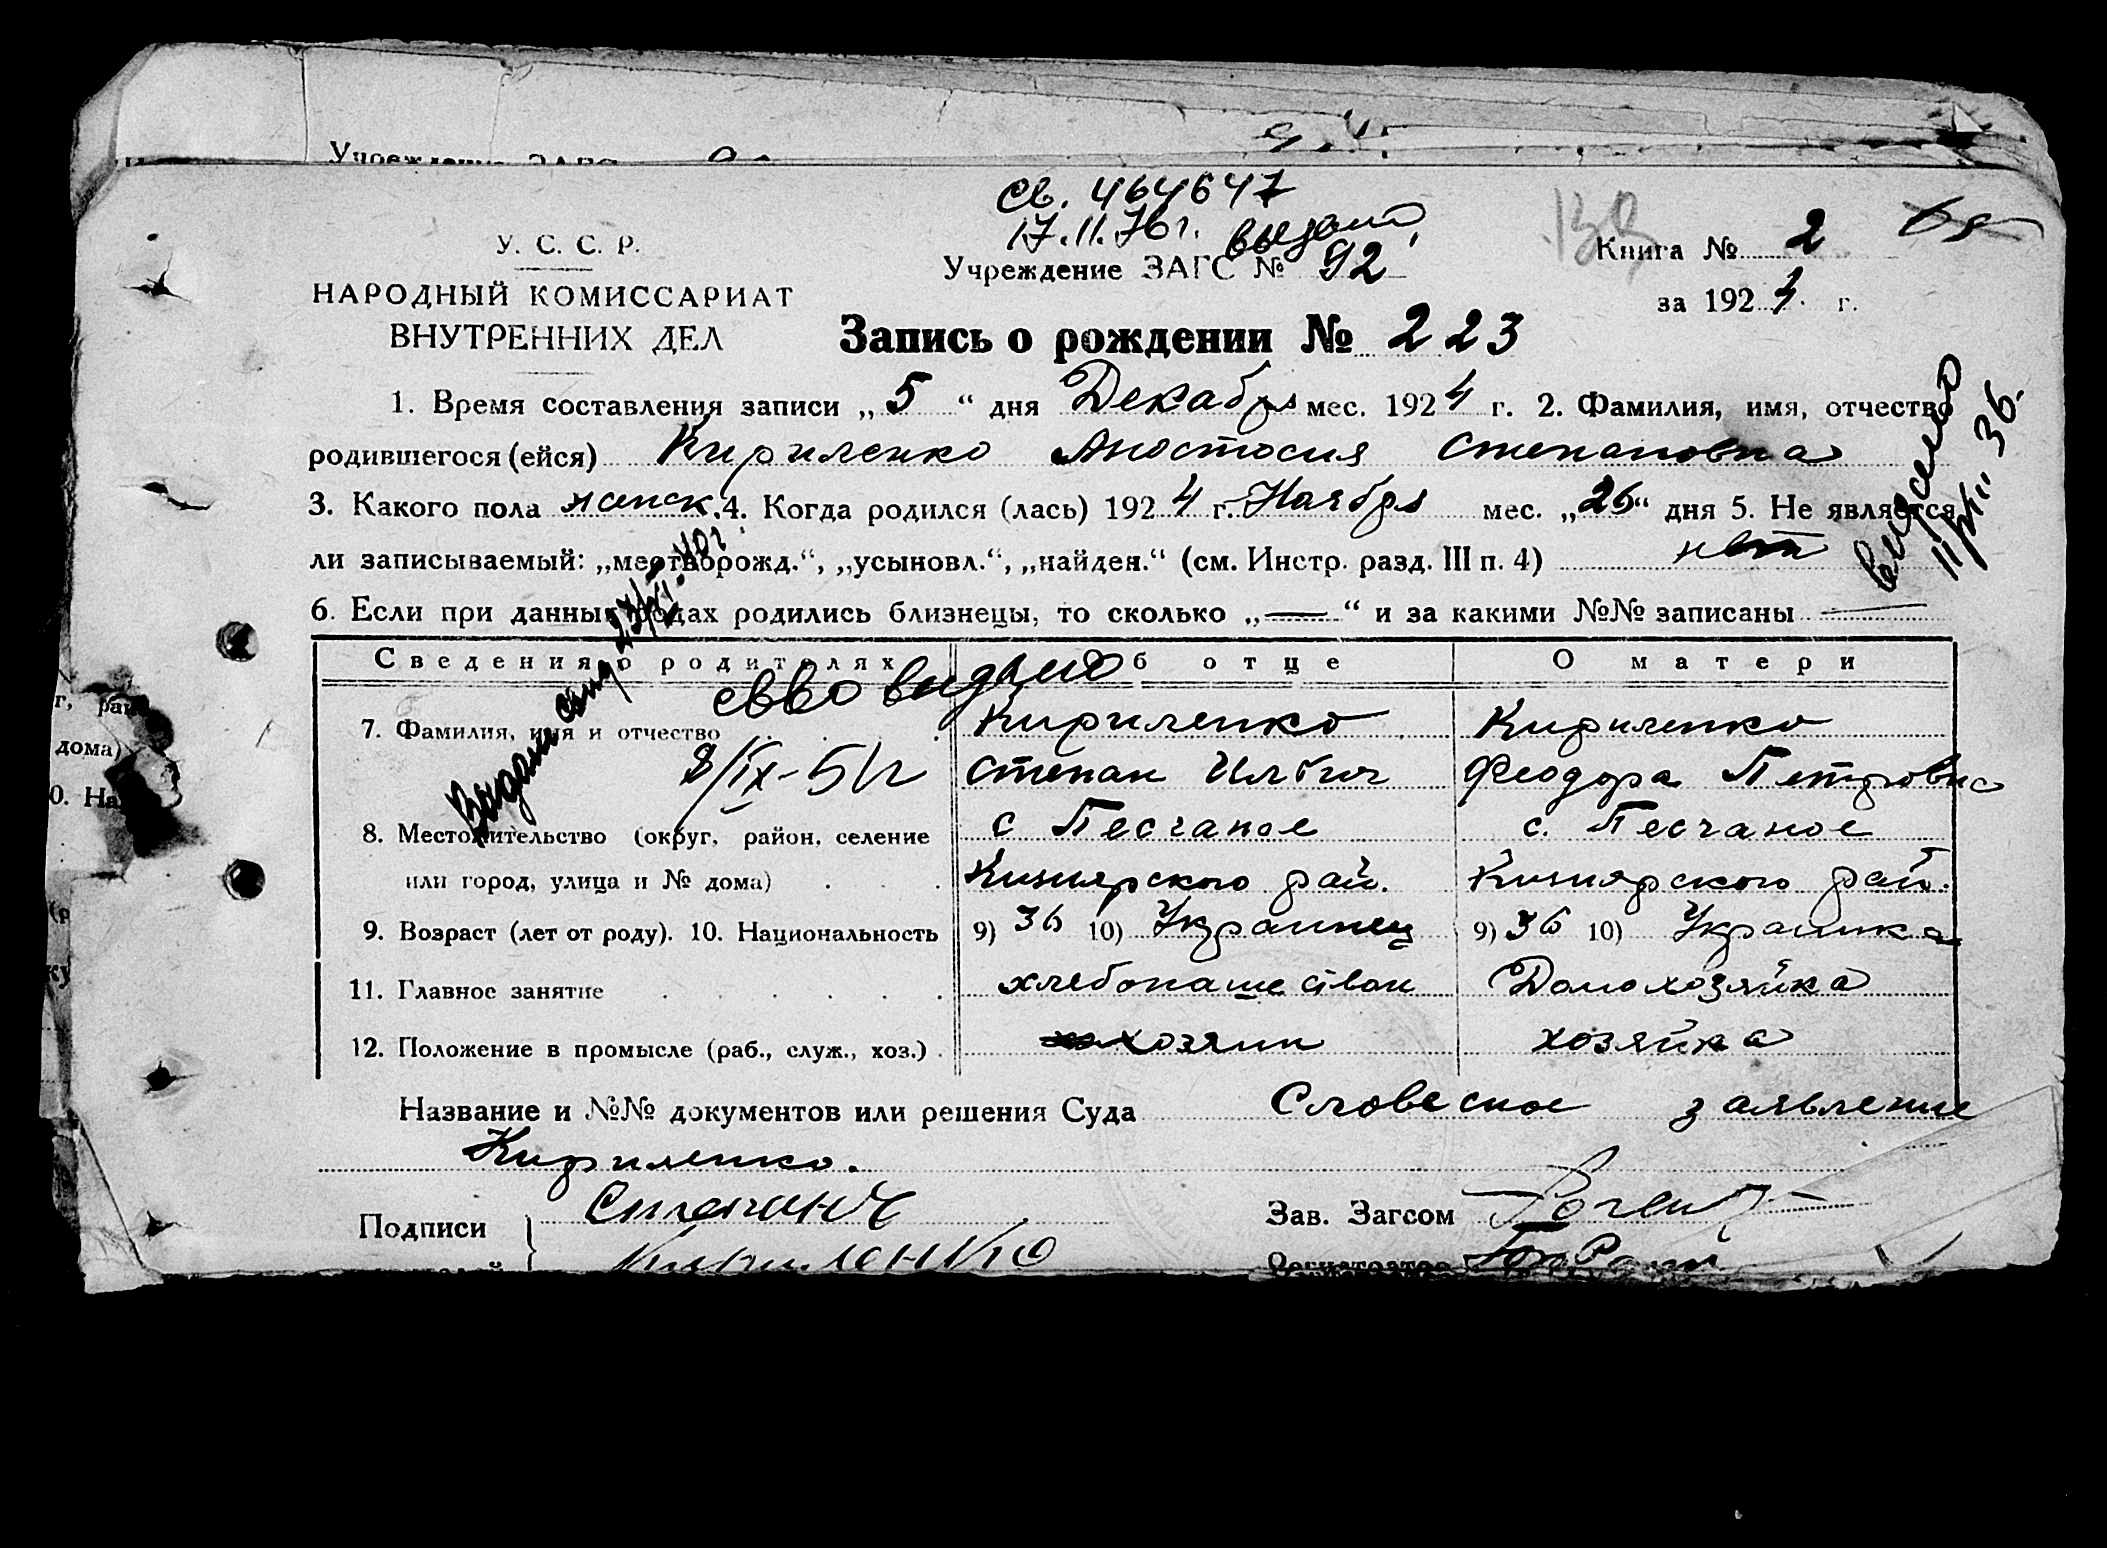 Учреждение ЗАГС
Св. 464647
17.11.76г. выдано
У. С. С. Р.
НАРОДНЫЙ КОМИССАРИАТ
ВНУТРЕННИХ ДЕЛ
Учреждение ЗАГС № 92
Книга № 2
за 1924 г.
Запись о рождении № 223
1. Время составления записи „5“ дня Декабря мес. 1924 г. 2. Фамилия, имя, отчество
родившегося (ейся) Кириленко Анастасия Степановна
3. Какого пола женск. 4. Когда родился (лась) 1924 г. Ноября мес. „26“ дня 5. Не является
ли записываемый: „мертворожд.“, „усыновл.“, „найден.“ (см. Инстр. разд. III п. 4) нет
6. Если при данных родах родились близнецы, то сколько „—“ и за какими №№ записаны —
36.
Сведения о родителях Об отце О матери
свво видано
7. Фамилия, имя и отчество Кириленко Кириленко
8/IX-51г Степан Ильич Феодора Петровна
8. Местожительство (округ, район, селение с Песчаное с. Песчаное
или город, улица и № дома) Кизиярского рай. Кизиярского рай.
9. Возраст (лет от роду). 10. Национальность 9) 36 10) Украинец 9) 36 10) Украинка
11. Главное занятие хлебопашеством Домохозяйка
12. Положение в промысле (раб., служ., хоз.) хозяин хозяйка
Название и №№ документов или решения Суда Словесное заявление
Кириленко.
Подписи Зав. Загсом
Кириленко
г, рай
дома)
0. На